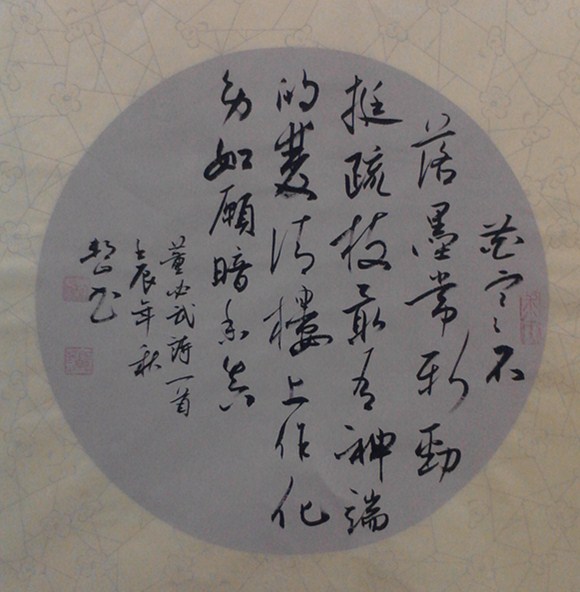 花寒不
落墨常新劲
挺疏枝最有神端
的双清樓上作化
身如願暗香真
董必武诗一首
壬辰年秋
书